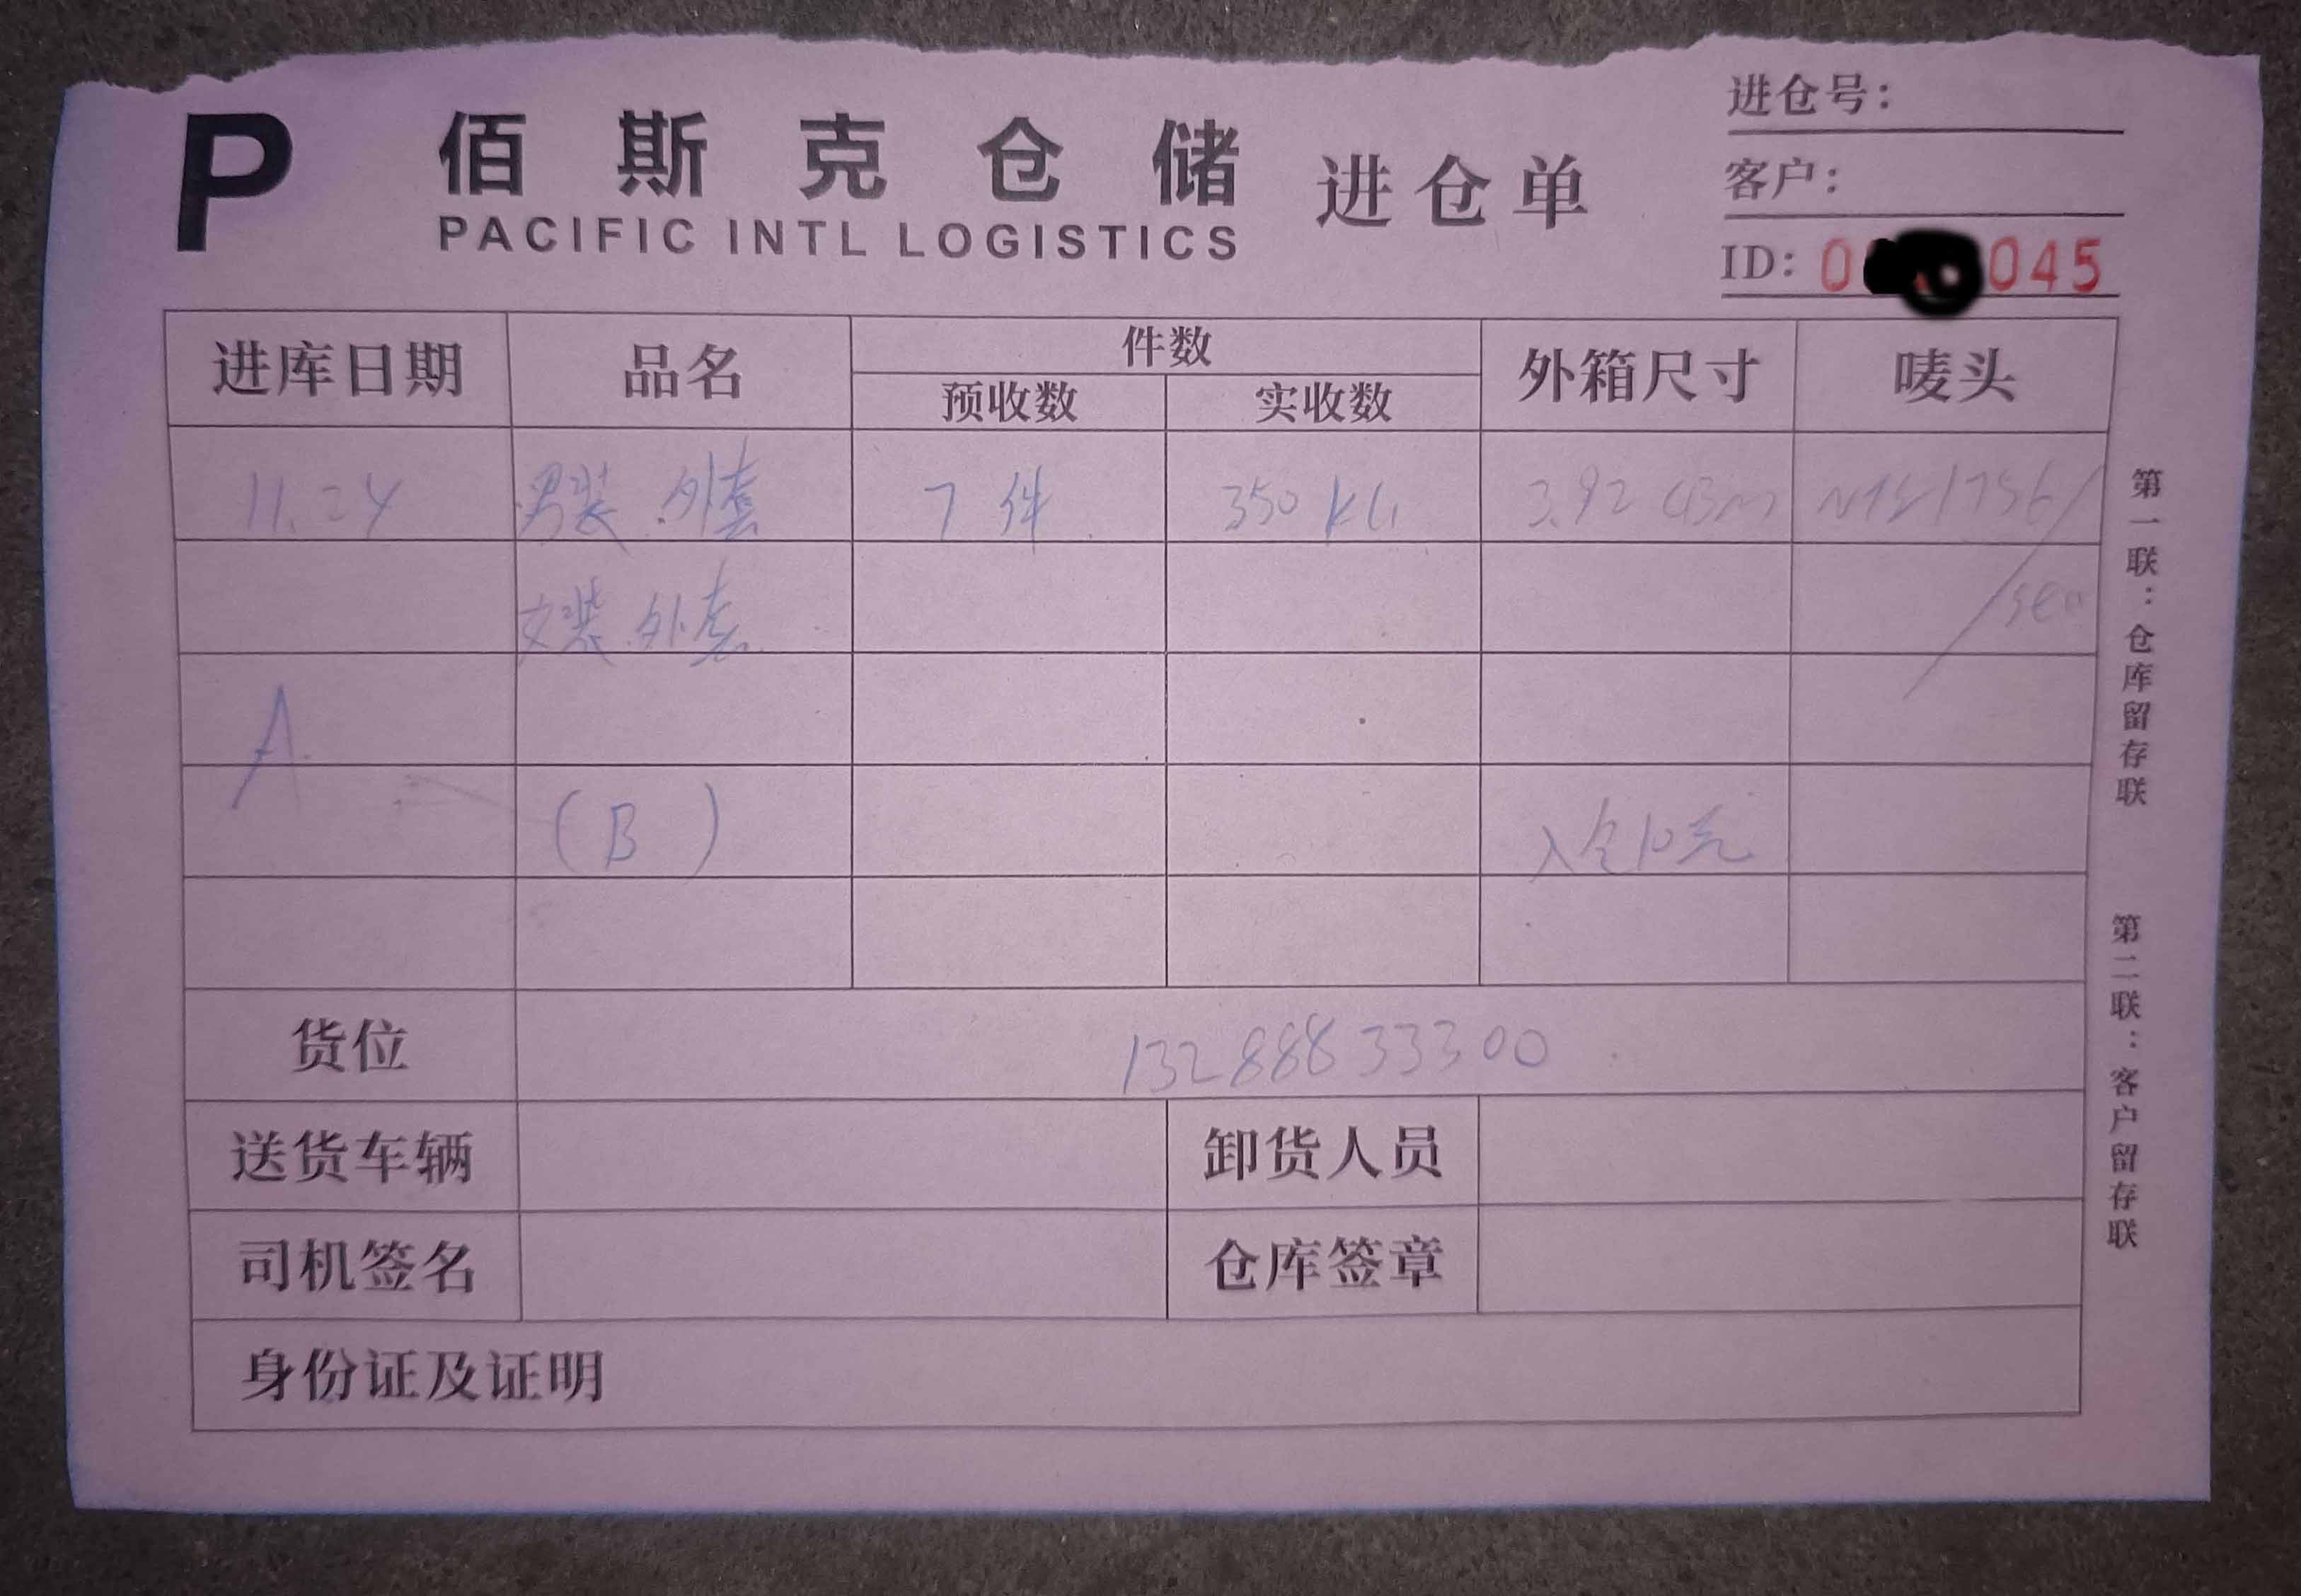 进仓号：
客户：
P 佰斯克仓储 进仓单
PACIFIC INTL LOGISTICS
ID: 0 045
进库日期 品名 件数 外箱尺寸 唛头
预收数 实收数
11.24 男装.外套 7件 350 KG 3.92 CBM
女装.外套 /sea
A
(B) 入仓10元
货位 13288833300
送货车辆 卸货人员
司机签名 仓库签章
身份证及证明
第一联：仓库留存联
第二联：客户留存联